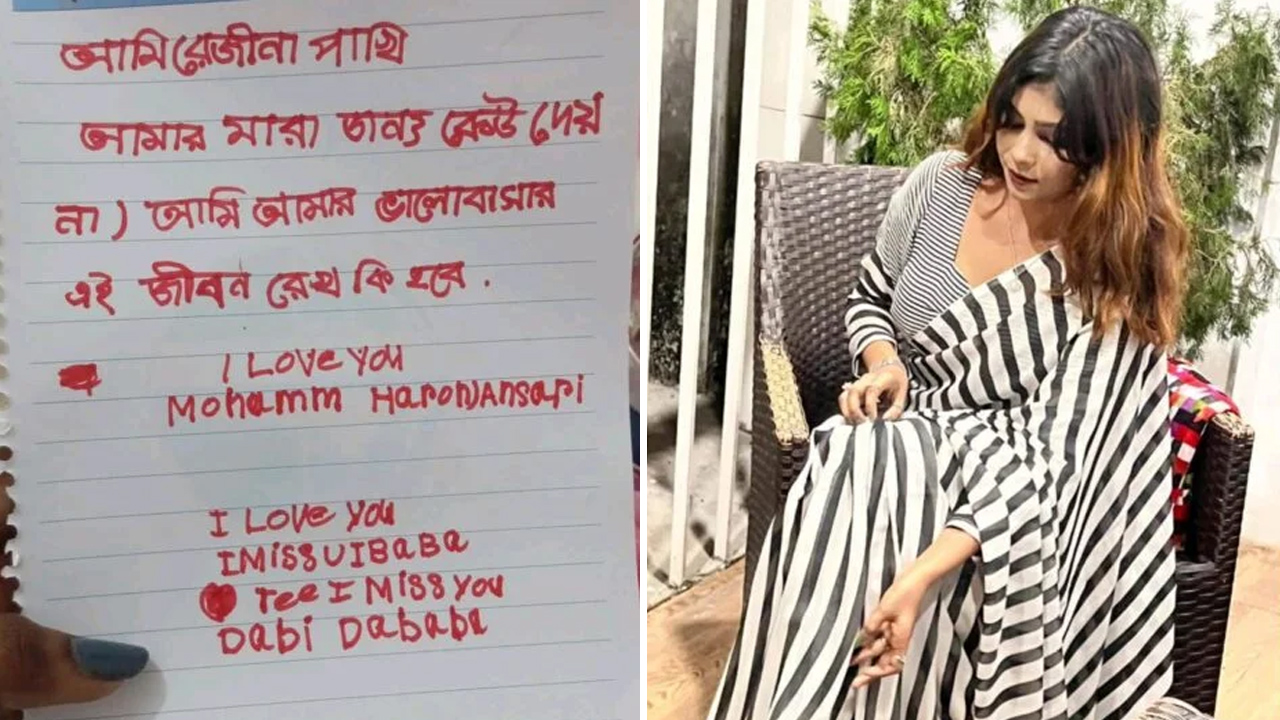 আমি রেজীনা পাখি
আমার মারা জন্য কেউ দেয়
না) আমি আমার ভালোবাসার
এই জীবন রেখ কি হবে.
I Love you
Mohamm HaronJAnsari
I Love you
IMissUIBaBa
Tee I Miss you
Dabi Dababa